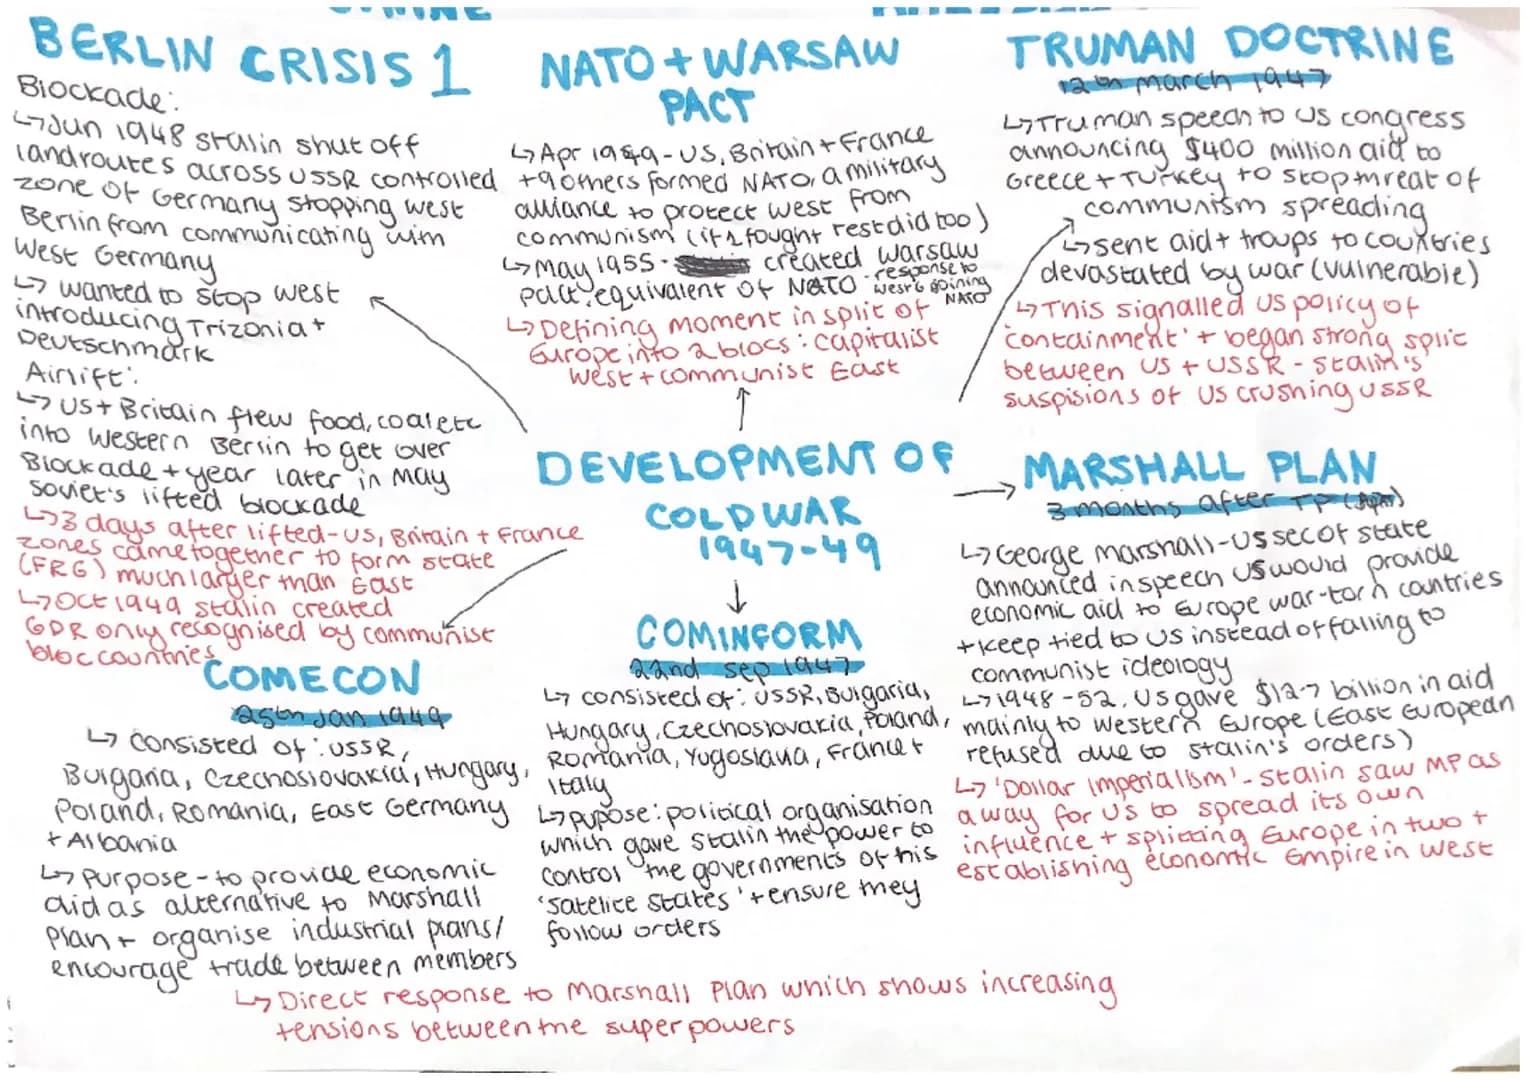 BERLIN CRISIS 1
Blockade:
↳Jun 1948 stalin shut off
landroutes across USSR controlled
zone of Germany stopping west
Berlin from communicating with
West Germany
↳ wanted to stop west
introducing Trizonia +
Deutschmark
Airlift:
↳ US + Britain flew food, coal etc
into Western Berlin to get over
Blockade + year later in May
soviet's lifted blockade
↳3 days after lifted-US, Britain + France
zones came together to form state
(FRG) much larger than East
↳Oct 1949 stalin created
GDR only recognised by communist
bloc countries
NATO + WARSAW
PACT
↳Apr 1949-US, Britain + France
+9 others formed NATO, a military
alliance to protect west from
communism (if 1 fought rest did too)
↳May 1955- created warsaw
pact. equivalent of NATO - response to
west G joining
NATO
↳Defining moment in split of
Europe into 2 blocs: capitalist
west + communist East
TRUMAN DOCTRINE
12th march 1947
↳Truman speech to US congress
announcing $400 million aid to
Greece + Turkey to stop threat of
communism spreading
↳sent aid + troups to countries
devastated by war (vulnerable)
↳This signalled US policy of
'containment' + began strong split
between US + USSR - stalin's
suspisions of US crushing USSR
DEVELOPMENT OF
COLD WAR
1947-49
MARSHALL PLAN
3 months after TP
↳George marshall-US sec of state
announced in speech US would provide
economic aid to Europe war-torn countries
+ keep tied to US instead of falling to
communist ideology
↳1948-52, US gave $12.7 billion in aid
mainly to Western Europe (East European
refused due to stalin's orders)
↳ 'Dollar Imperialism' - stalin saw MP as
a way for US to spread its own
influence + splitting Europe in two +
establishing economic Empire in west
COMINFORM
22nd sep 1947
↳ consisted of: USSR, Bulgaria,
Hungary, Czechoslovakia, Poland,
Romania, Yugoslavia, France +
Italy
↳pupose: political organisation
which gave Stalin the power to
control the governments of his
'satelite states' + ensure they
follow orders
COMECON
25th Jan 1949
↳ consisted of: USSR,
Bulgaria, Czechoslovakia, Hungary,
Poland, Romania, East Germany
+ Albania
↳ Purpose - to provide economic
aid as alternative to Marshall
Plan + organise industrial plans/
encourage trade between members
↳Direct response to Marshall Plan which shows increasing
tensions between the superpowers